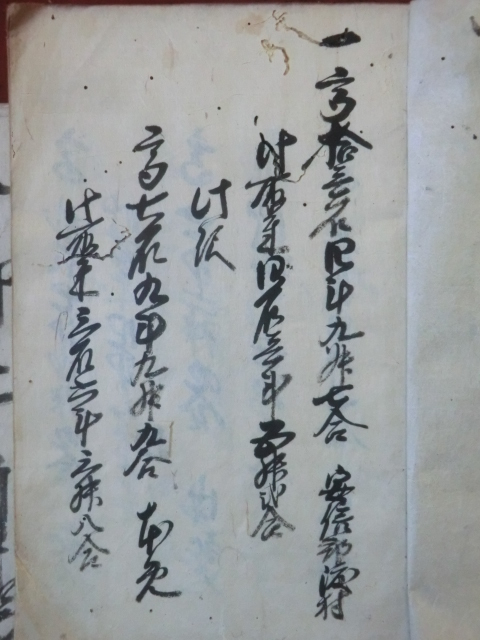 一 高拾三石四斗九升七合
此取米四石三斗 升 合
此訳
高七石九斗九升九合 本免
此取米三石六斗三升八合